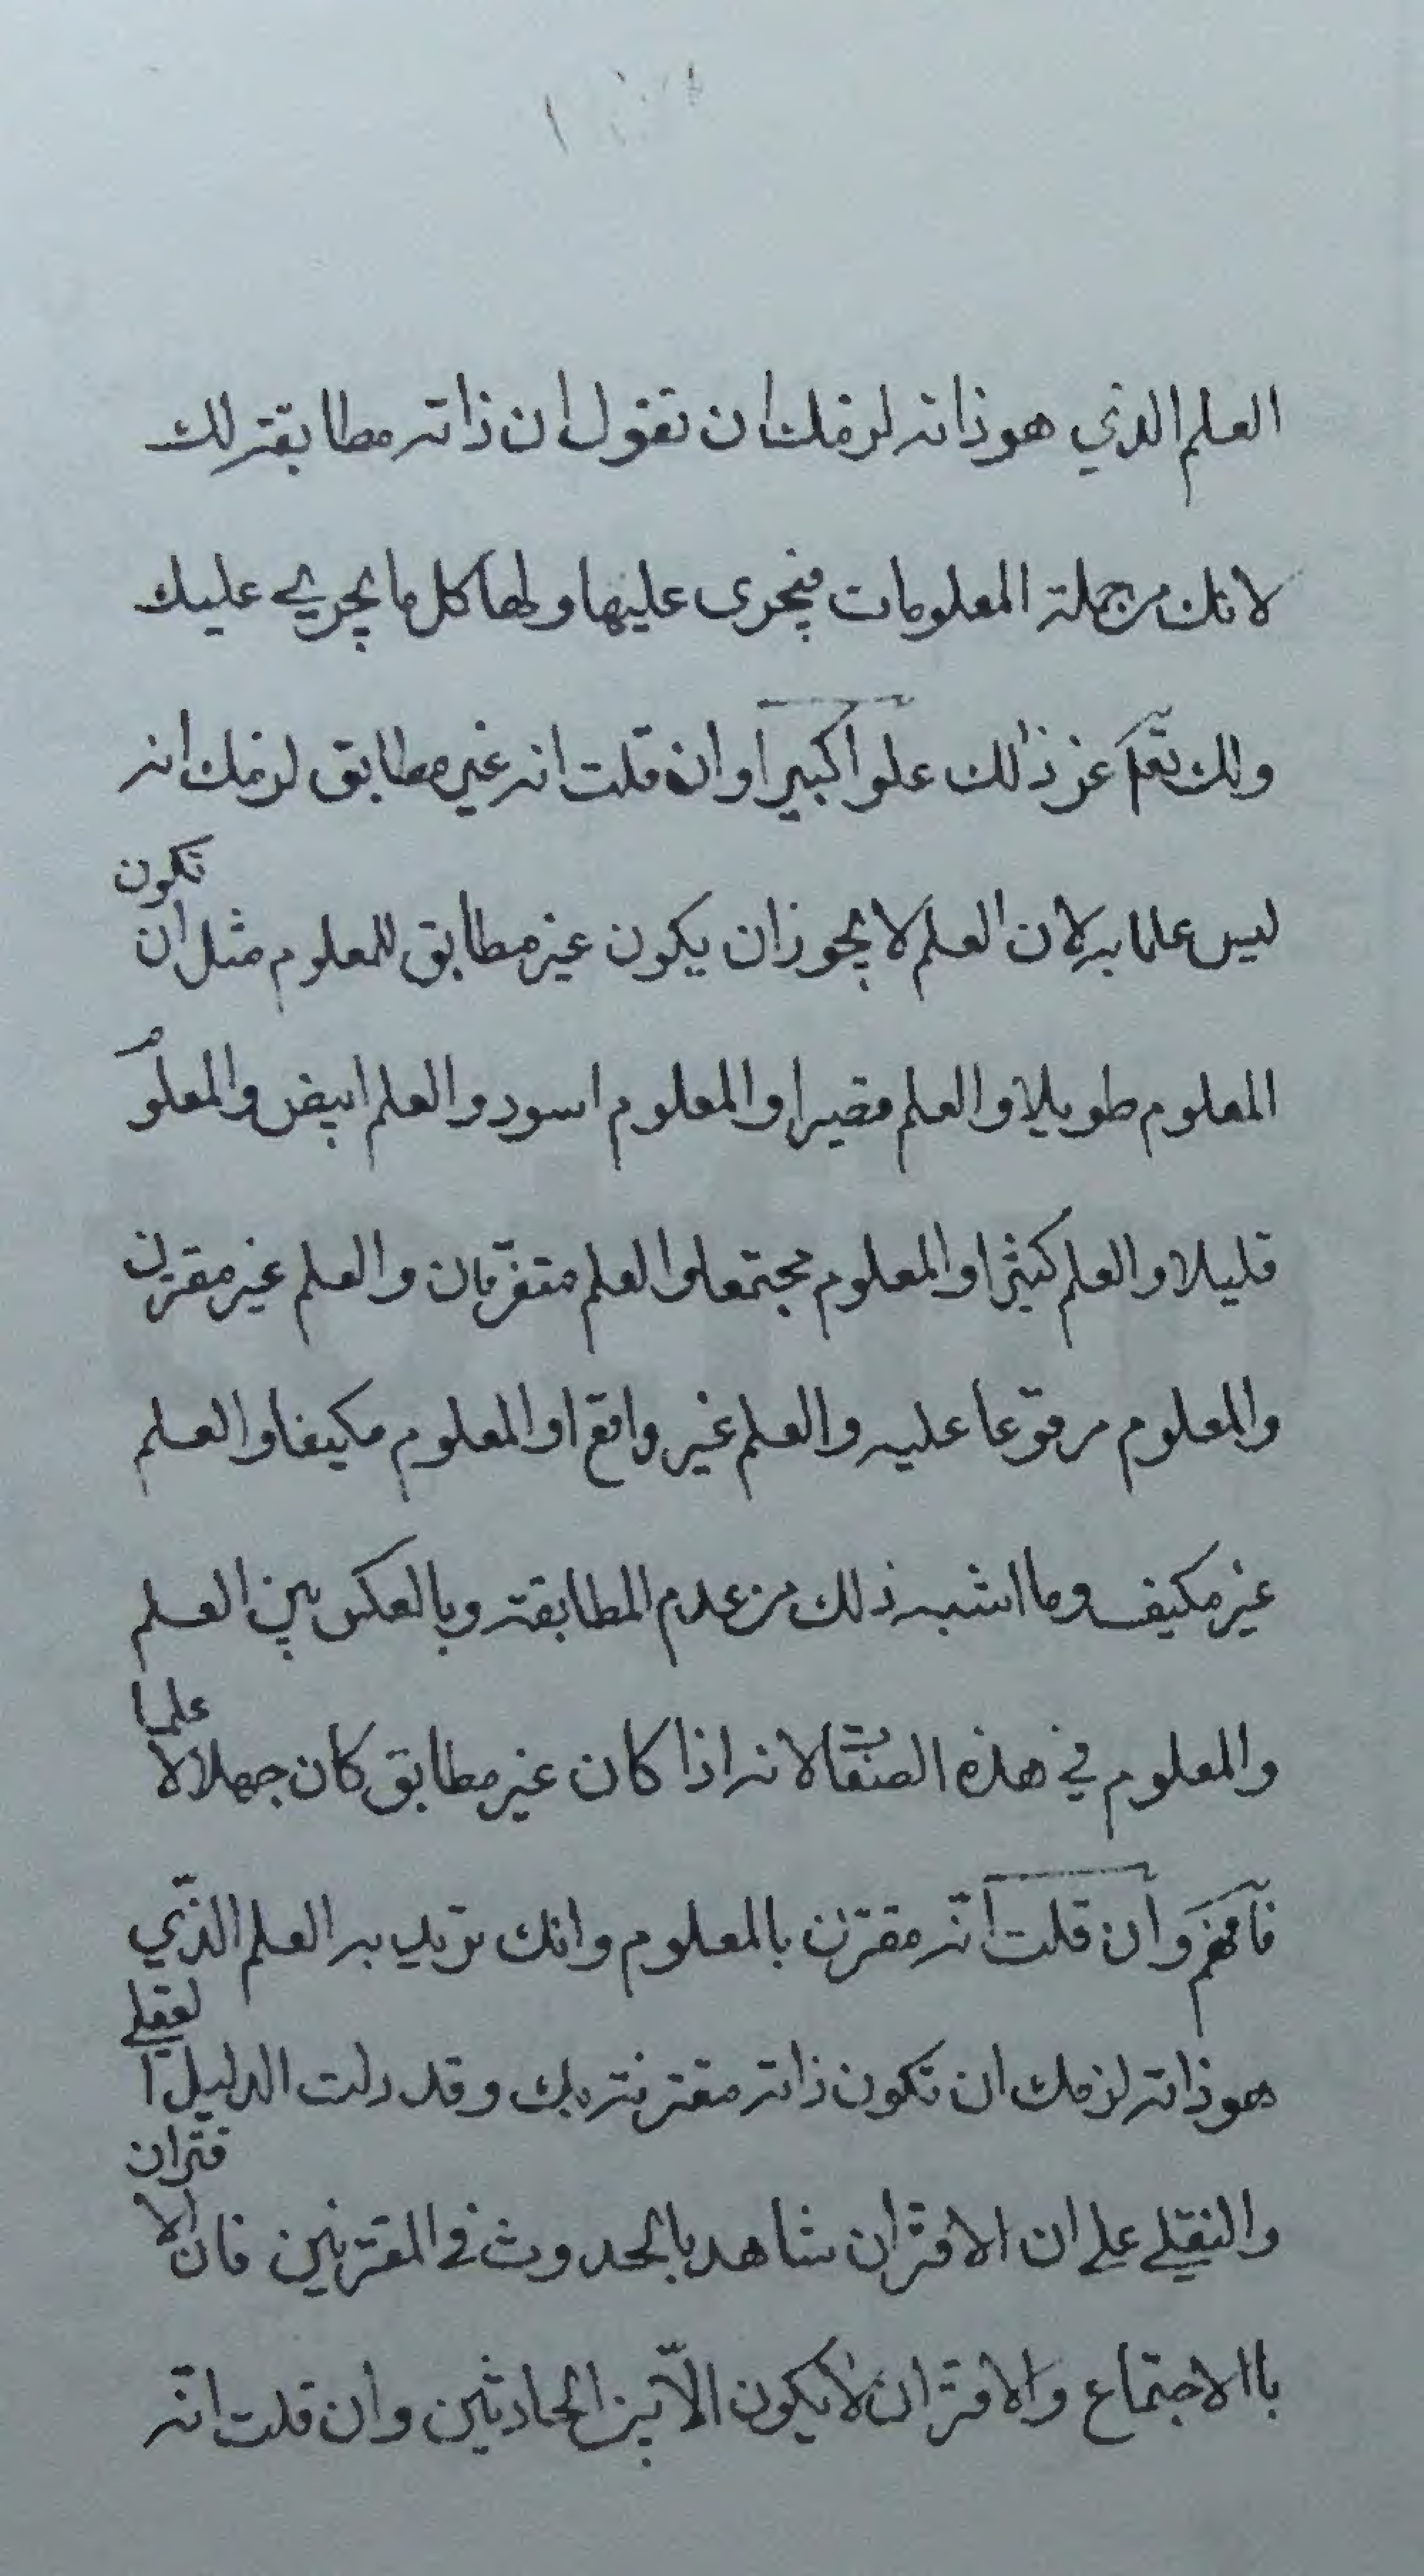 العلم الذي هو ذاته لزمك ان تقول ان ذاته مطابقة لك
لانك من جملة المعلومات فيجرى عليها ولها كل ما يجري عليك
ولك تعالى عن ذالك علوا كبيرا وان قلت انه غير مطابق لزمك انه
ليس علما به لان العلم لا يجوز ان يكون غير مطابق للمعلوم مثل ان تكون
المعلوم طويلا والعلم قصيرا والمعلوم اسود والعلم ابيض والمعلوم
قليلا والعلم كثيرا والمعلوم مجتمعا والعلم متفرقان والعلم غير مقترن
والمعلوم مرقوعا عليه والعلم غير واقع او المعلوم مكيفا والعلم
غير مكيف وما اشبه ذلك من عدم المطابقة وبالعكس بين العلم
والمعلوم في هذه الصفات لانه اذا كان غير مطابق كان جهلا لا علما
فافهم وان قلت انّه مقترن بالمعلوم وانك تريد به العلم الذّي
هو ذاته لزمك ان تكون ذاته مقترنة بك وقد دلت الدليل العقلي
والنقلي على ان الاقتران شاهد بالحدوث في المقترنين فان الاقتران
باالاجتماع والاقتران لا يكون الّا بين الحادثين وان قلت انّه